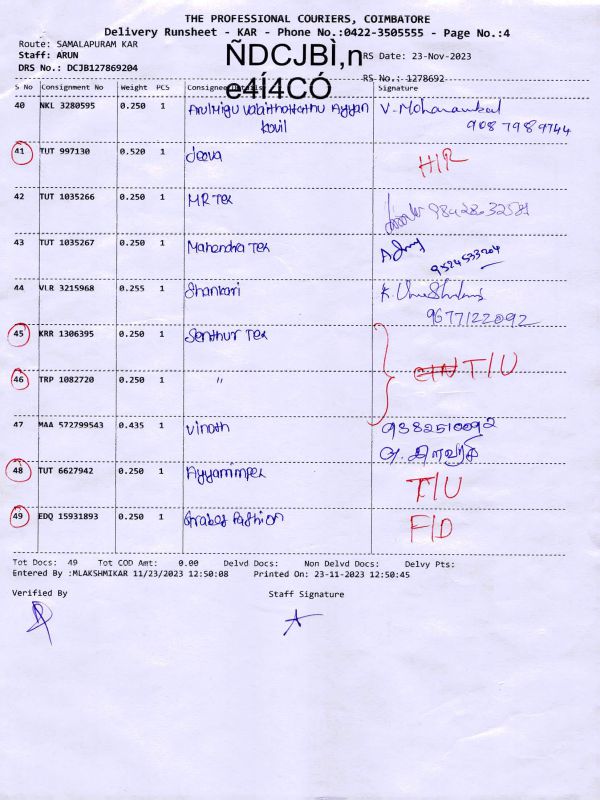 THE PROFESSIONAL COURIERS, COIMBATORE
Delivery Runsheet - KAR - Phone No.:0422-3505555 - Page No.:4
Route: SAMALAPURAM KAR
Staff: ARUN
ÑDCJBÌ,n
RS Date: 23-Nov-2023
DRS No.: DCJB127869204
e4Í4CÓ
RS No.: 1278692
S No Consignment No Weight PCS Consignee Details Signature
40 NKL 3280595 0.250 1 Arulmigu Valaithottathu Ayyan V. Mohanambal
kovil 9087989744
41 TUT 997130 0.520 1 Jeeva H/R
42 TUT 1035266 0.250 1 MR Tex
43 TUT 1035267 0.250 1 Mahendra Tex
9524533204
44 VLR 3215968 0.255 1 Shankari
9677122092
45 KRR 1306395 0.250 1 Senthur Tex
T/U
46 TRP 1082720 0.250 1 "
47 MAA 572799543 0.435 1 Vinoth 9382510092
48 TUT 6627942 0.250 1 Ayyanimpex T/U
49 EDQ 15931893 0.250 1 Fashion F/D
Tot Docs: 49 Tot COD Amt: 0.00 Delvd Docs: Non Delvd Docs: Delvy Pts:
Entered By :MLAKSHMIKAR 11/23/2023 12:50:08 Printed On: 23-11-2023 12:50:45
Verified By Staff Signature